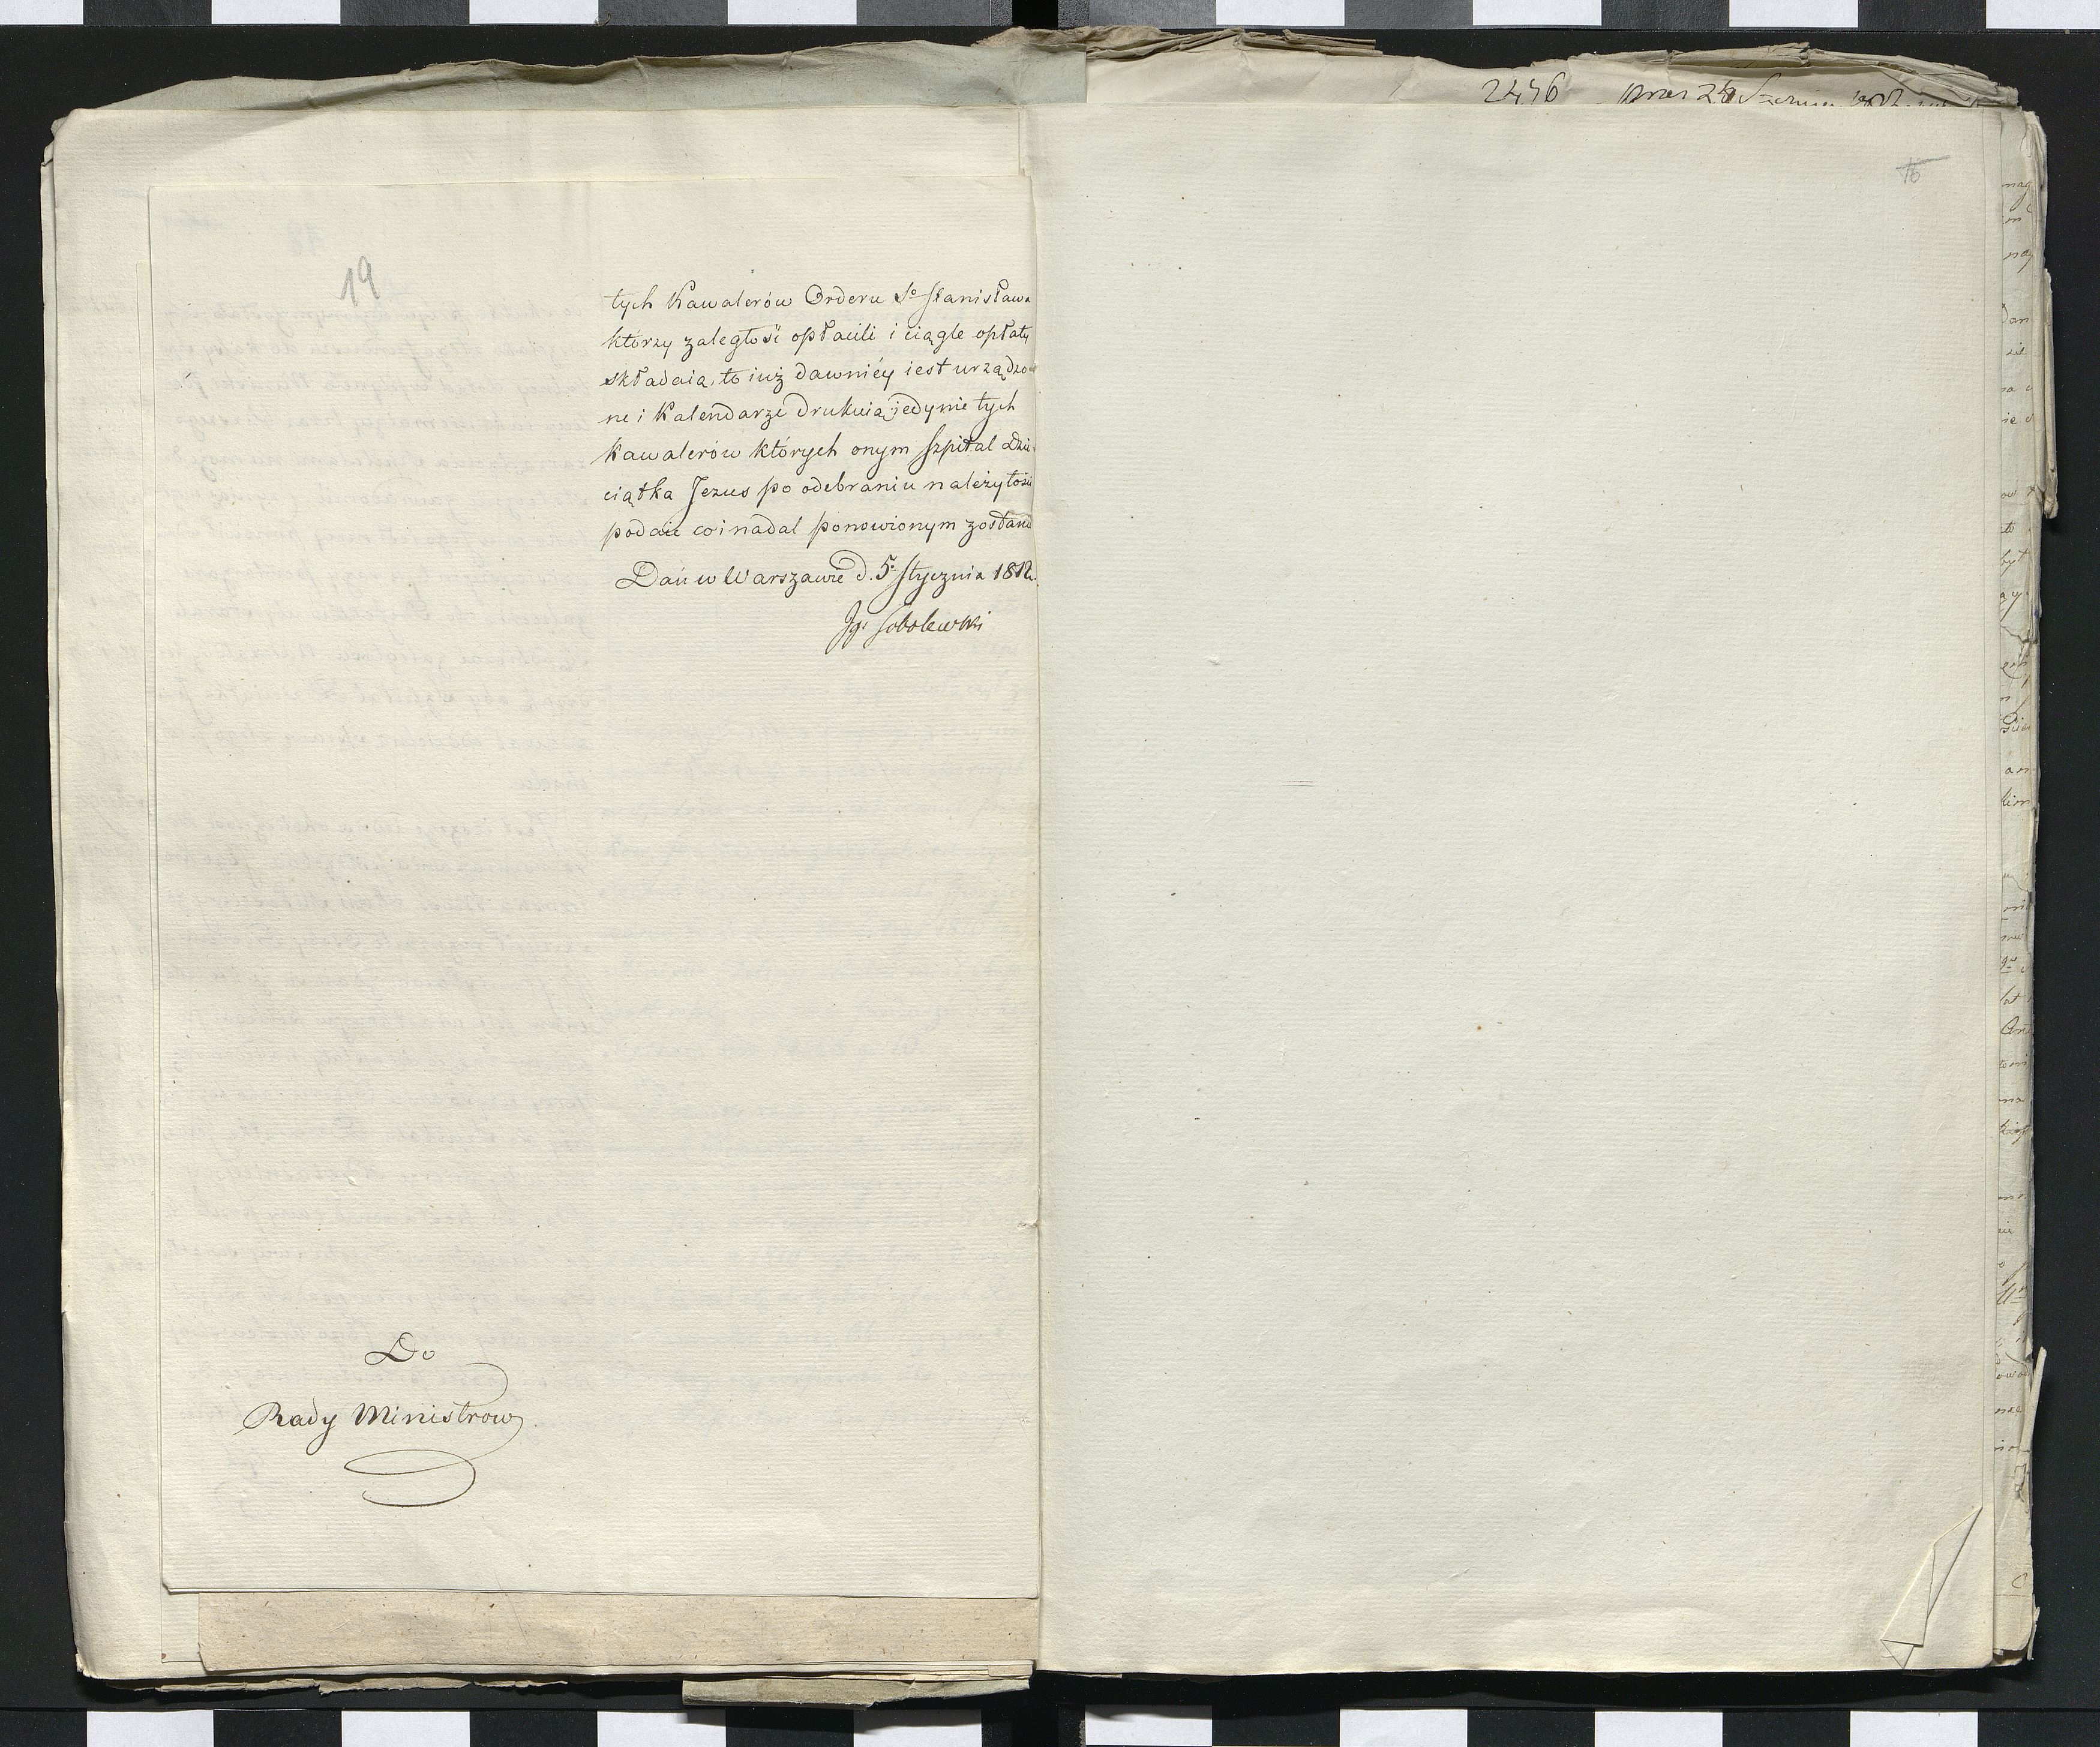 2446
16
19
tych Kawalerów Orderu So Stanisława
którzy zaległość opłacili i ciągle opłaty
składaią, to iuż dawniéy iest urządzo
ne i Kalendarze drukuią jedynie tych
Kawalerów których onym Szpital Dzie
ciątka Jezus po odebraniu należytości
podaie co i nadal ponowionym zostanie
Dań w Warszawie d. 5. Stycznia 1812.
Ign Sobolewski
Do
Rady Ministrow